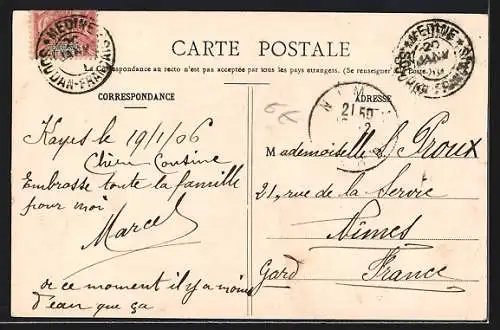 MEDINE
SOUDAN-FRANÇAIS
MEDINE
20
JANV
SOUDAN-FRANÇAIS
CARTE POSTALE
La Correspondance au recto n'est pas acceptée par tous les pays étrangers. (Se renseigner
CORRESPONDANCE
ADRESSE
NIMES
21
Kayes le 19/1/06
Chère Cousine
Embrasse toute la famille
pour moi
Marcel
de ce moment il y a moins
d'eau que ça
Mademoiselle L. Proux
21, rue de la Servie
Nîmes
Gard France